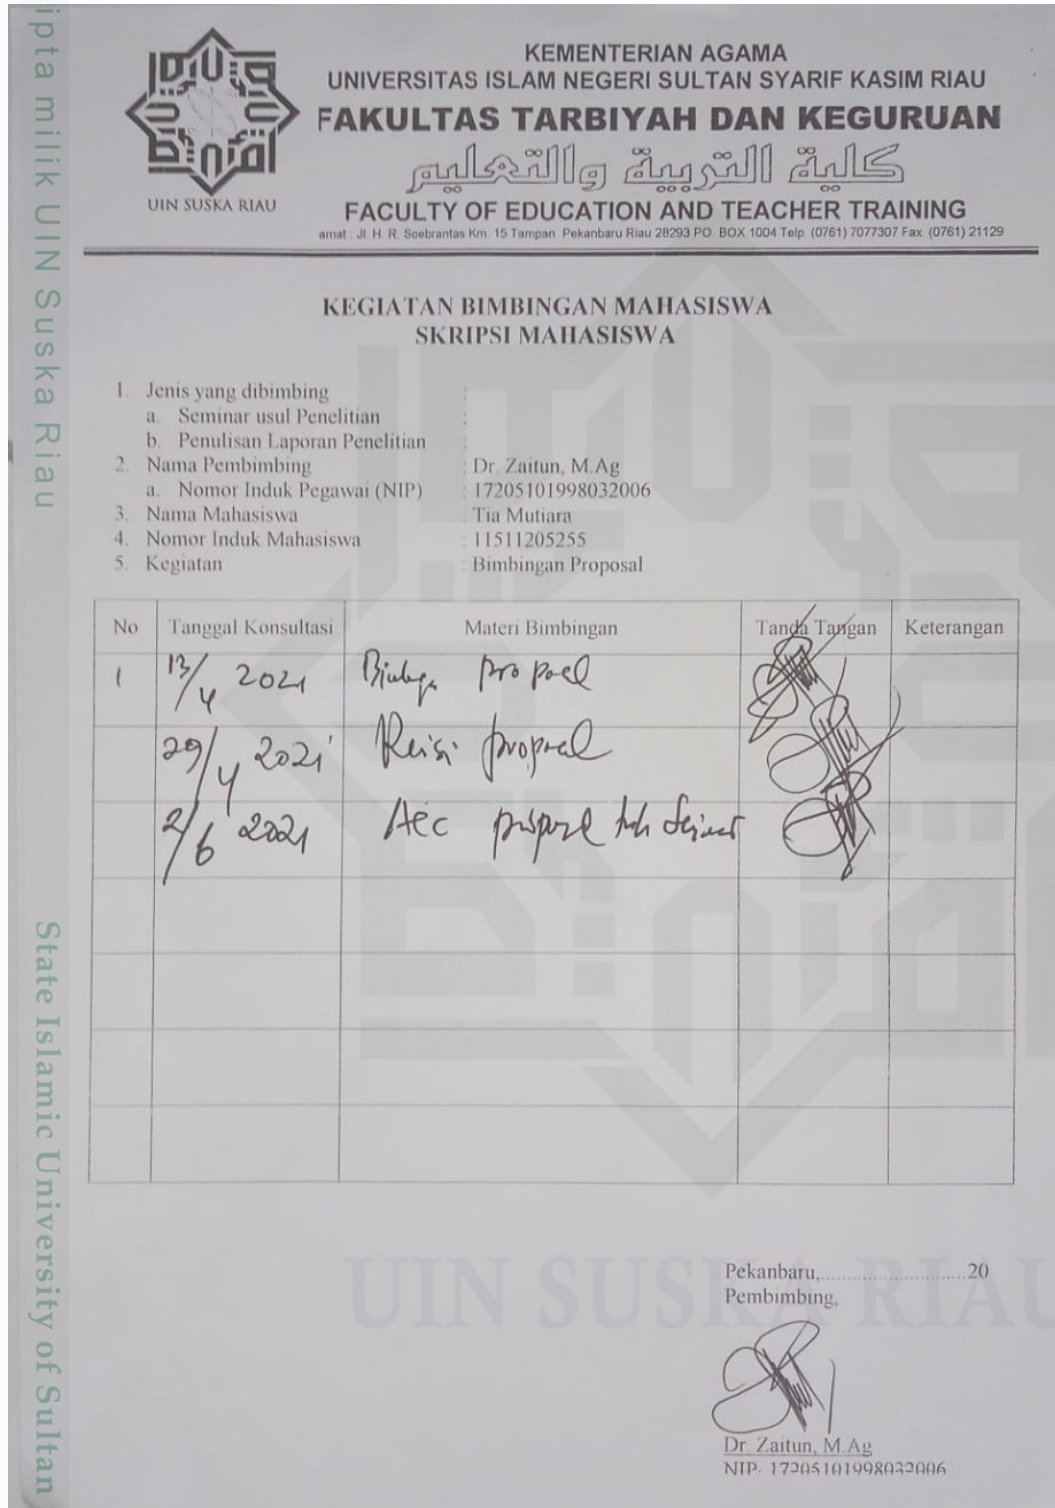 ipta milik UIN Suska Riau
State Islamic University of Sultan
UIN SUSKA RIAU
KEMENTERIAN AGAMA
UNIVERSITAS ISLAM NEGERI SULTAN SYARIF KASIM RIAU
FAKULTAS TARBIYAH DAN KEGURUAN
كلية التربية والتعليم
FACULTY OF EDUCATION AND TEACHER TRAINING
amat : Jl. H. R. Soebrantas Km. 15 Tampan Pekanbaru Riau 28293 PO. BOX 1004 Telp. (0761) 7077307 Fax. (0761) 21129
KEGIATAN BIMBINGAN MAHASISWA
SKRIPSI MAHASISWA
1. Jenis yang dibimbing :
a. Seminar usul Penelitian :
b. Penulisan Laporan Penelitian :
2. Nama Pembimbing : Dr. Zaitun, M.Ag
a. Nomor Induk Pegawai (NIP) : 17205101998032006
3. Nama Mahasiswa : Tia Mutiara
4. Nomor Induk Mahasiswa : 11511205255
5. Kegiatan : Bimbingan Proposal
No Tanggal Konsultasi Materi Bimbingan Tanda Tangan Keterangan
1 13/4 2021
29/4 2021
2/6 2021 Acc
UIN SUSKA RIAU
Pekanbaru,............................20
Pembimbing,
Dr. Zaitun, M.Ag
NIP. 17205101998032006